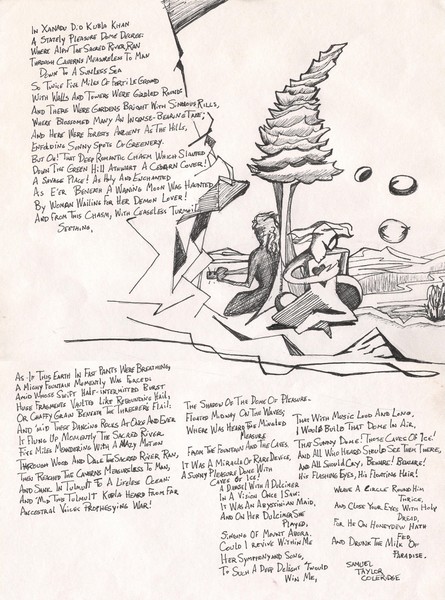 In Xanadu Did Kubla Khan
A Stately Pleasure Dome Decree:
Where Alph The Sacred River, Ran
Through Caverns Measureless To Man
Down To A Sunless Sea
So Twice Five Miles Of Fertile Ground
With Walls And Towers Were Girdled Round:
And There Were Gardens Bright With Sinuous Rills,
Where Blossomed Many An Incense-Bearing Tree;
And Here Were Forests Ancient As The Hills,
Enfolding Sunny Spots Of Greenery.
But Oh! That Deep Romantic Chasm Which Slanted
Down The Green Hill Athwart A Cedarn Cover!
A Savage Place! As Holy And Enchanted
As E'er Beneath A Waning Moon Was Haunted
By Woman Wailing For Her Demon Lover!
And From This Chasm, With Ceaseless Turmoil
Seething,
As If This Earth In Fast Pants Were Breathing,
A Mighty Fountain Momently Was Forced:
Amid Whose Swift Half-Intermitted Burst
Huge Fragments Vaulted Like Rebounding Hail,
Or Chaffy Grain Beneath The Thresher's Flail:
And 'Mid These Dancing Rocks At Once And Ever
It Flung Up Momently The Sacred River.
Five Miles Meandering With A Mazy Motion
Through Wood And Dale The Sacred River Ran,
Then Reached The Caverns Measureless To Man,
And Sank In Tumult To A Lifeless Ocean:
And 'Mid This Tumult Kubla Heard From Far
Ancestral Voices Prophesying War!
The Shadow Of The Dome Of Pleasure
Floated Midway On The Waves;
Where Was Heard The Mingled
Measure
From The Fountain And The Caves.
It Was A Miracle Of Rare Device,
A Sunny Pleasure Dome With
Caves Of Ice!
A Damsel With A Dulcimer
In A Vision Once I Saw:
It Was An Abyssinian Maid,
And On Her Dulcimer She
Played,
Singing Of Mount Abora.
Could I Revive Within Me
Her Symphony And Song,
To Such A Deep Delight 'Twould
Win Me,
That With Music Loud And Long,
I Would Build That Dome In Air,
That Sunny Dome! Those Caves Of Ice!
And All Who Heard Should See Them There,
And All Should Cry, Beware! Beware!
His Flashing Eyes, His Floating Hair!
Weave A Circle Round Him
Thrice,
And Close Your Eyes With Holy
Dread,
For He On Honeydew Hath
Fed,
And Drunk The Milk Of
Paradise.
Samuel
Taylor
Coleridge